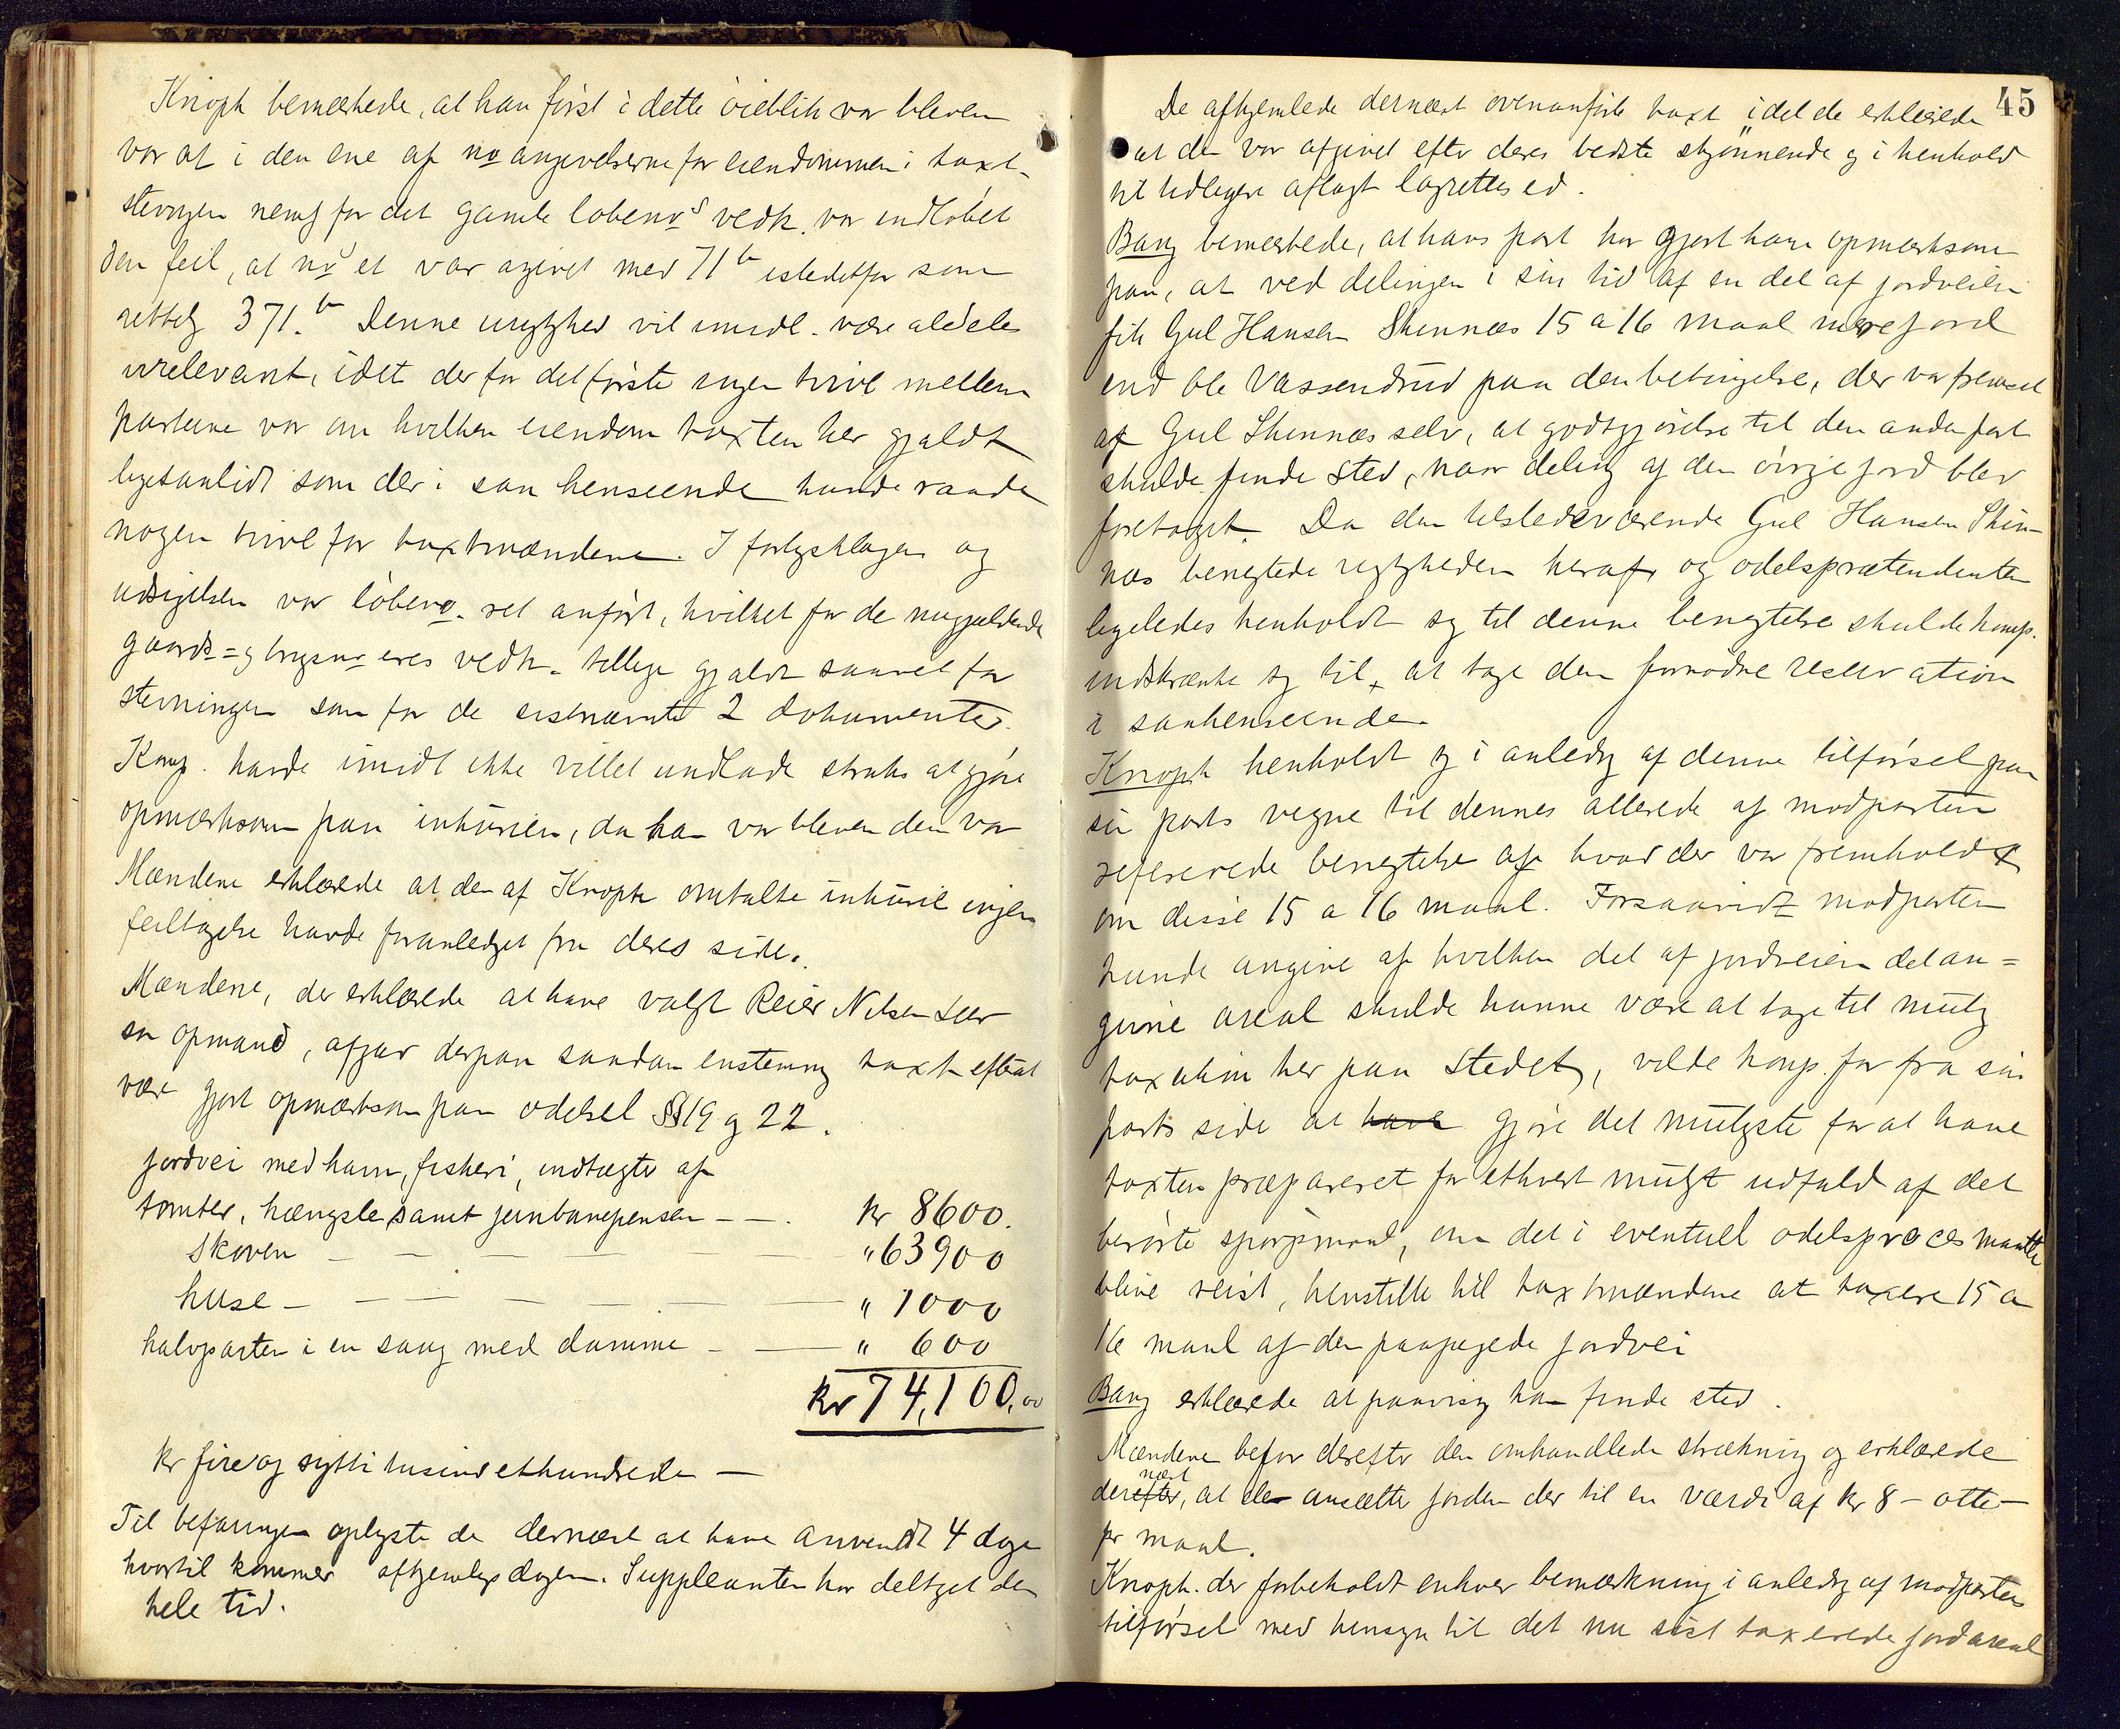 Knoph bemærkede, at han først i dette øieblik var bleven
var at i den ene af no angivelserne for eiendommen i taxt-
stevngen neml for det gamle løbenos vedk. var indløbet
den feil, at no et var agivet med 71b istedetfor som
rettelig 371.b Denne urigtighed vil imidl. være aldeles
irrelevant, idet der for det første ingen tvivl mellem
parterne var om hvilken eiendom taxten her gjaldt
ligesaalidt som der i saa henseende kunde raade
nogen tvivl for taxtmændene. I forligsklagen og
udsigelsen var løbeno. ret anført, hvilket for de nugjældende
gaards= og brugsno eres vedk. tillige gjaldt saavel for
stevningen som for de sistnævnte 2 dokumenter.
Komp. havde imidl ikke villet undlade straks at gjøre
opmærksom paa inkurien, da han var bleven den var
Mændene erklærede at den af Knoph omtalte inkurie ingen
feiltagelse havde foranlediget fra deres side.
Mændene, der erklærede at have valgt Reier Nilsen Lier
som opmand, afgav derpaa saadan enstemmig taxt efterat
være gjort opmærksom paa odelsl §§19 og 22.
Jordvei med havn, fiskeri, indtægter af
tomter, hængsle, samt jernbanepensen - - . kr 8600.
Skoven - - - - - " 63900
huse - - - - - " 1000
halvparten i en saug med damme - - " 600
kr 74,100,00
kr fire og sytti tusind ethundrede -
Til befaringen oplyste de dernæst at have anvendt 4 dage
hvortil kommer afhjemlingsdagen. Suppleanten har deltaget den
hele tid.
45
De afhjemlede dernæst ovenanførte taxt idet de erklærede
at den var afgivet efter deres bedste skjønnende og i henhold
til tidligere aflagt lagrettesed.
Bang bemærkede, at hans part har gjort ham opmærksom
paa, at ved delingen i sin tid af en del af jordveien
fik Gul Hansen Skinnæs 15 a 16 maal mere jord
end Ole Vassendrud paa den betingelse, der var fremsat
af Gul Skinnæs selv, at godtgjørelse til den anden part
skulde finde sted, naar deling af den øvrige jord blev
foretaget. Da den tilstedeværende Gul Hansen Skin-
næs benegtede rigtigheden heraf og odelsprætendenten
ligeledes henholdt sig til denne benegtelse skulde komp.
indskrænke sig til at tage den fornødne reservation
i saahenseende
Knoph henholdt sig i anledng af denne tilførsel paa
sin parts vegne til dennes allerede af modparten
refererede benegtelse af hvad der var fremholdt
om disse 15 a 16 maal. Forsaavidt modparten
kunde angive af hvilken del af jordveien det an=
givne areal skulde kunne være at tage til mulig
taxation her paa stedet, vilde komp. for fra sin
parts side at have gjøre det muligste for at have
taxten præpareret for ethvert muligt udfald af det
berørte spørgsmaal, om det i eventuel odelsproces maatte
blive reist, henstille til taxtmændene at taxere 15 a
16 maal af den paapegede jordvei
Bang erklærede at paavisng kan finde sted.
Mændene befor derefter den omhandlede strækning og erklærede
derefter næst, at de ansætter jorden der til en værdi af kr 8 - otte -
pr maal.
Knoph. der forbeholdt enhver bemærkning i anledng af modpartens
tilførsel med hensyn til det nu sist taxerede jordareal